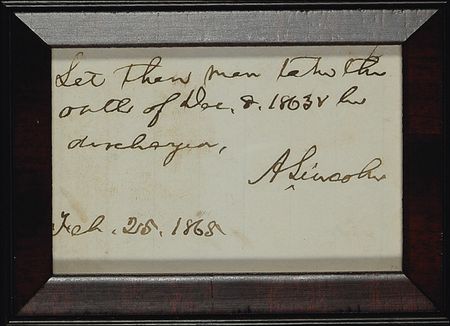 Let these men take the
oath of Dec. 8. 1863 & be
discharged.
A. Lincoln
Feb. 25. 1865